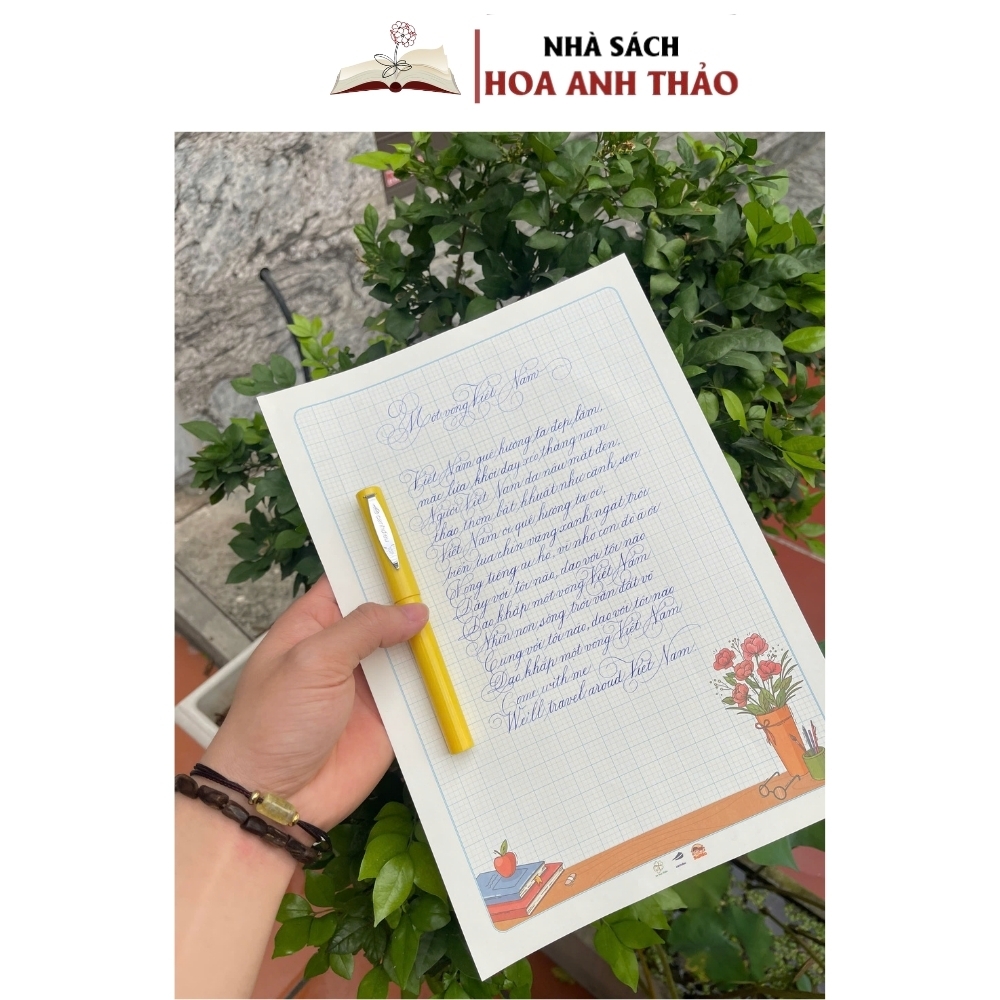 NHÀ SÁCH
HOA ANH THẢO
Một vòng Việt Nam
Việt Nam quê hương ta đẹp lắm,
mắc lúa, khơi dậy xo tháng năm
Người Việt Nam da nâu mắt đen,
thảo thơm bất khuất như cánh sen
Việt Nam ơi quê hương ta ơi,
biển lúa chín vàng xanh ngát trời
Vọng tiếng ai hò, ví nhớ con đò à ơi
Dậy với tôi nào, dạo với tôi nào
Dạo khắp một vòng Việt Nam
Nhìn non sông trời vẫn đất võ
Cùng với tôi nào, dạo với tôi nào
Dạo khắp một vòng Việt Nam
Come with me
We'll travel aroud Việt Nam.